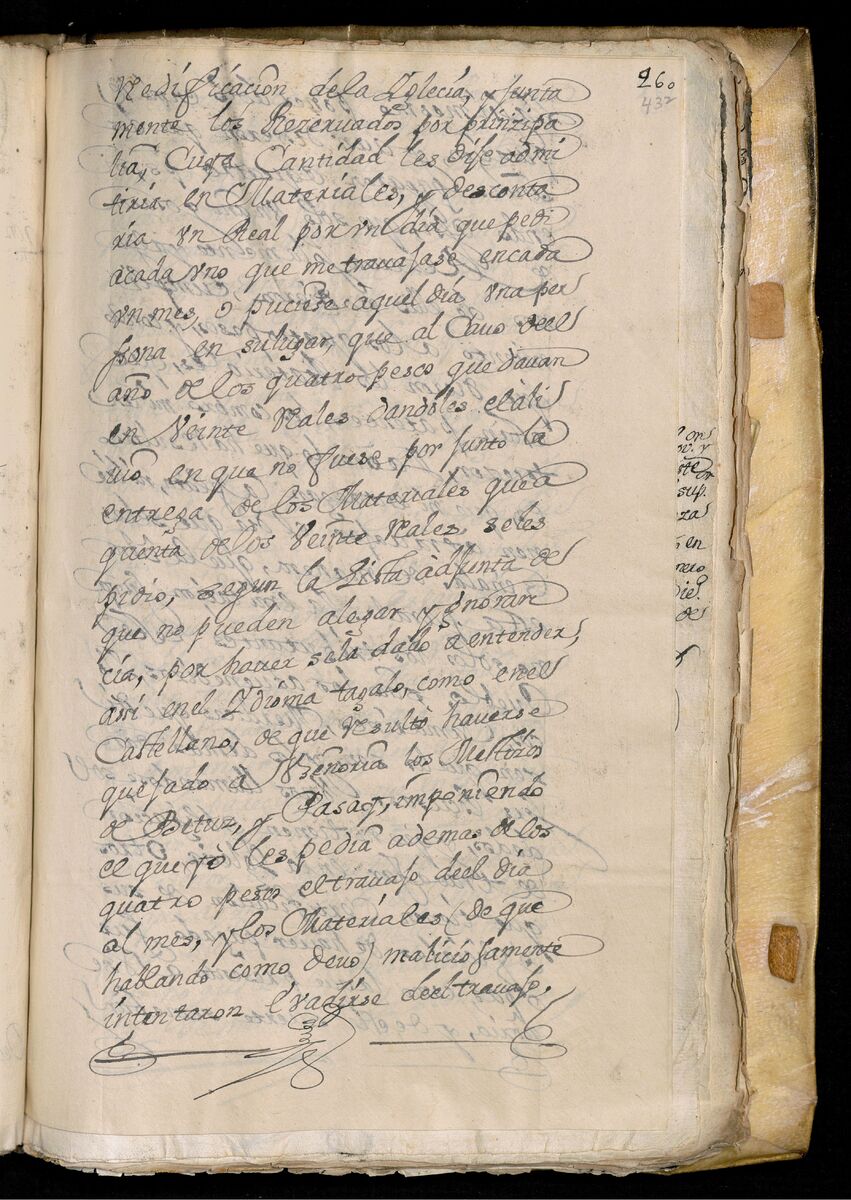 260
432
redificacion de la Yglecia, y junta
mente los Rezeruados por prinzipa
lia, Cuya Cantidad les dise admi
tiria en Materiales, y desconta
ria vn Real por vn dia que pedi
a cada vno que me trauajase en cada
vn mes, o puciese aquel dia vna per
sona en su lugar, que al Cauo deel
año de los quatro pesos que dauan
en Veinte Reales dandoles el ali
uio en que no fuese por junto la
entrega de los Materiales que a
quenta de los Veinte Reales se les
pidio, segun la Lista adjunta de
que no pueden alegar ygnoran
cia, por hauer sela dado a entender,
assi en el Ydioma tagalo, como en el
Castellano, de que resulto hauerse
quejado a Vseñoria los Mestizos
de Bituz, y Pasay, imponiendo
ce que yo les pedia ademas de los
quatro pesos el trauajo deel dia
al mes, y los Materiales (de que
hablando como deuo) maliciosamente
intentaron Evadirse deel trauajo,